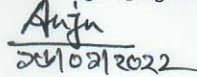 Anju
20/02/2022